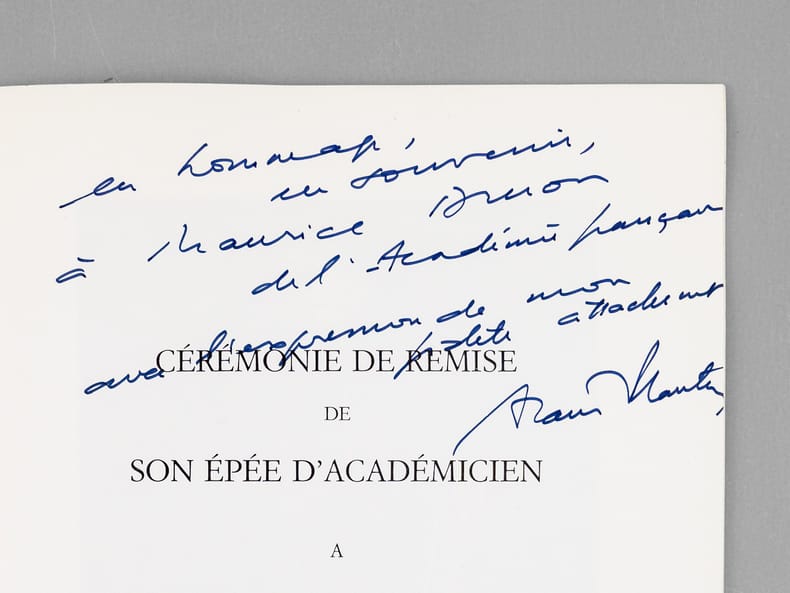 en hommage,
en souvenir,
à Maurice Druon
de l'Académie française
avec l'expression de mon
fidèle attachement
CÉRÉMONIE DE REMISE
DE
SON ÉPÉE D'ACADÉMICIEN
A